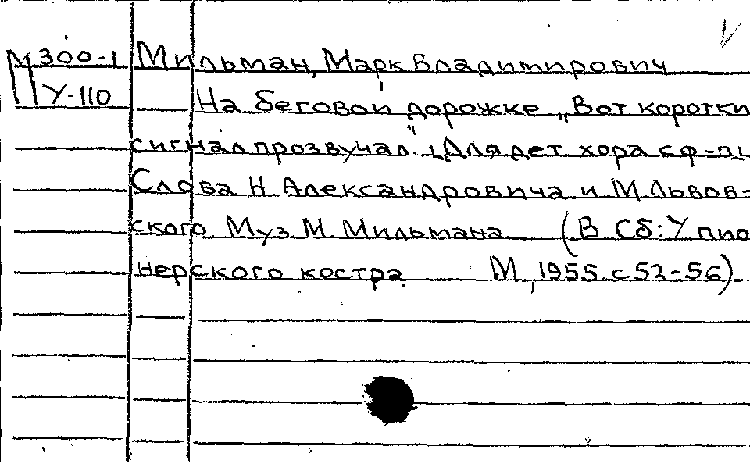 М300-1 Мильман, Марк Владимирович
У-110 На беговой дорожке. „Вот коротки
сигнал прозвучал". [Для дет хора с ф-п]
Слова Н Александровича и М. Львов-
ского. Муз М. Мильмана (В сб: У пио
нерского костра. М, 1955. с 52-56).